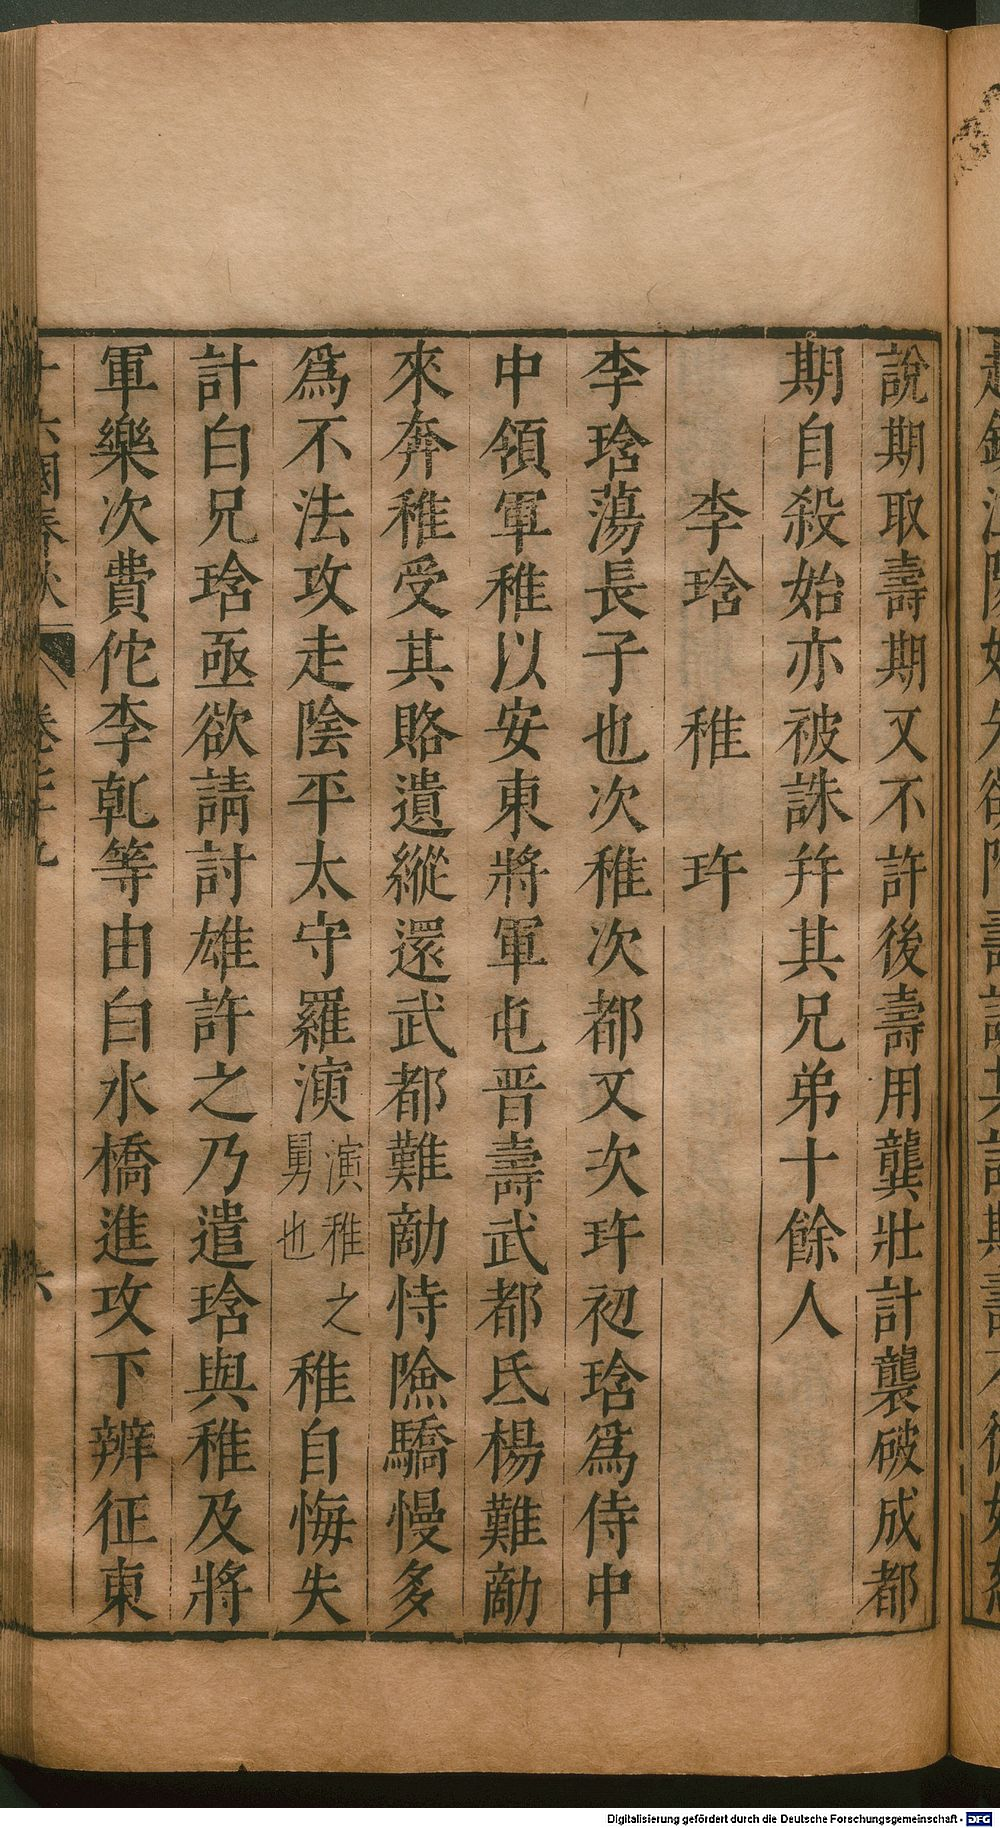 說期取壽期又不許後壽用龔壯計襲破成都
期自殺始亦被誅并其兄弟十餘人
李琀 稚 玝
李琀蕩長子也次稚次都又次玝初琀爲侍中
中領軍稚以安東將軍屯晋壽武都氐楊難敵
來奔稚受其賂遺縱還武都難敵恃險驕慢多
爲不法攻走陰平太守羅演演稚之舅也稚自悔失
計白兄琀亟欲請討雄許之乃遣琀與稚及將
軍樂次費佗李乹等由白水橋進攻下辨征東
十六國春秋 卷七十九 六
Digitalisierung gefördert durch die Deutsche Forschungsgemeinschaft - DFG